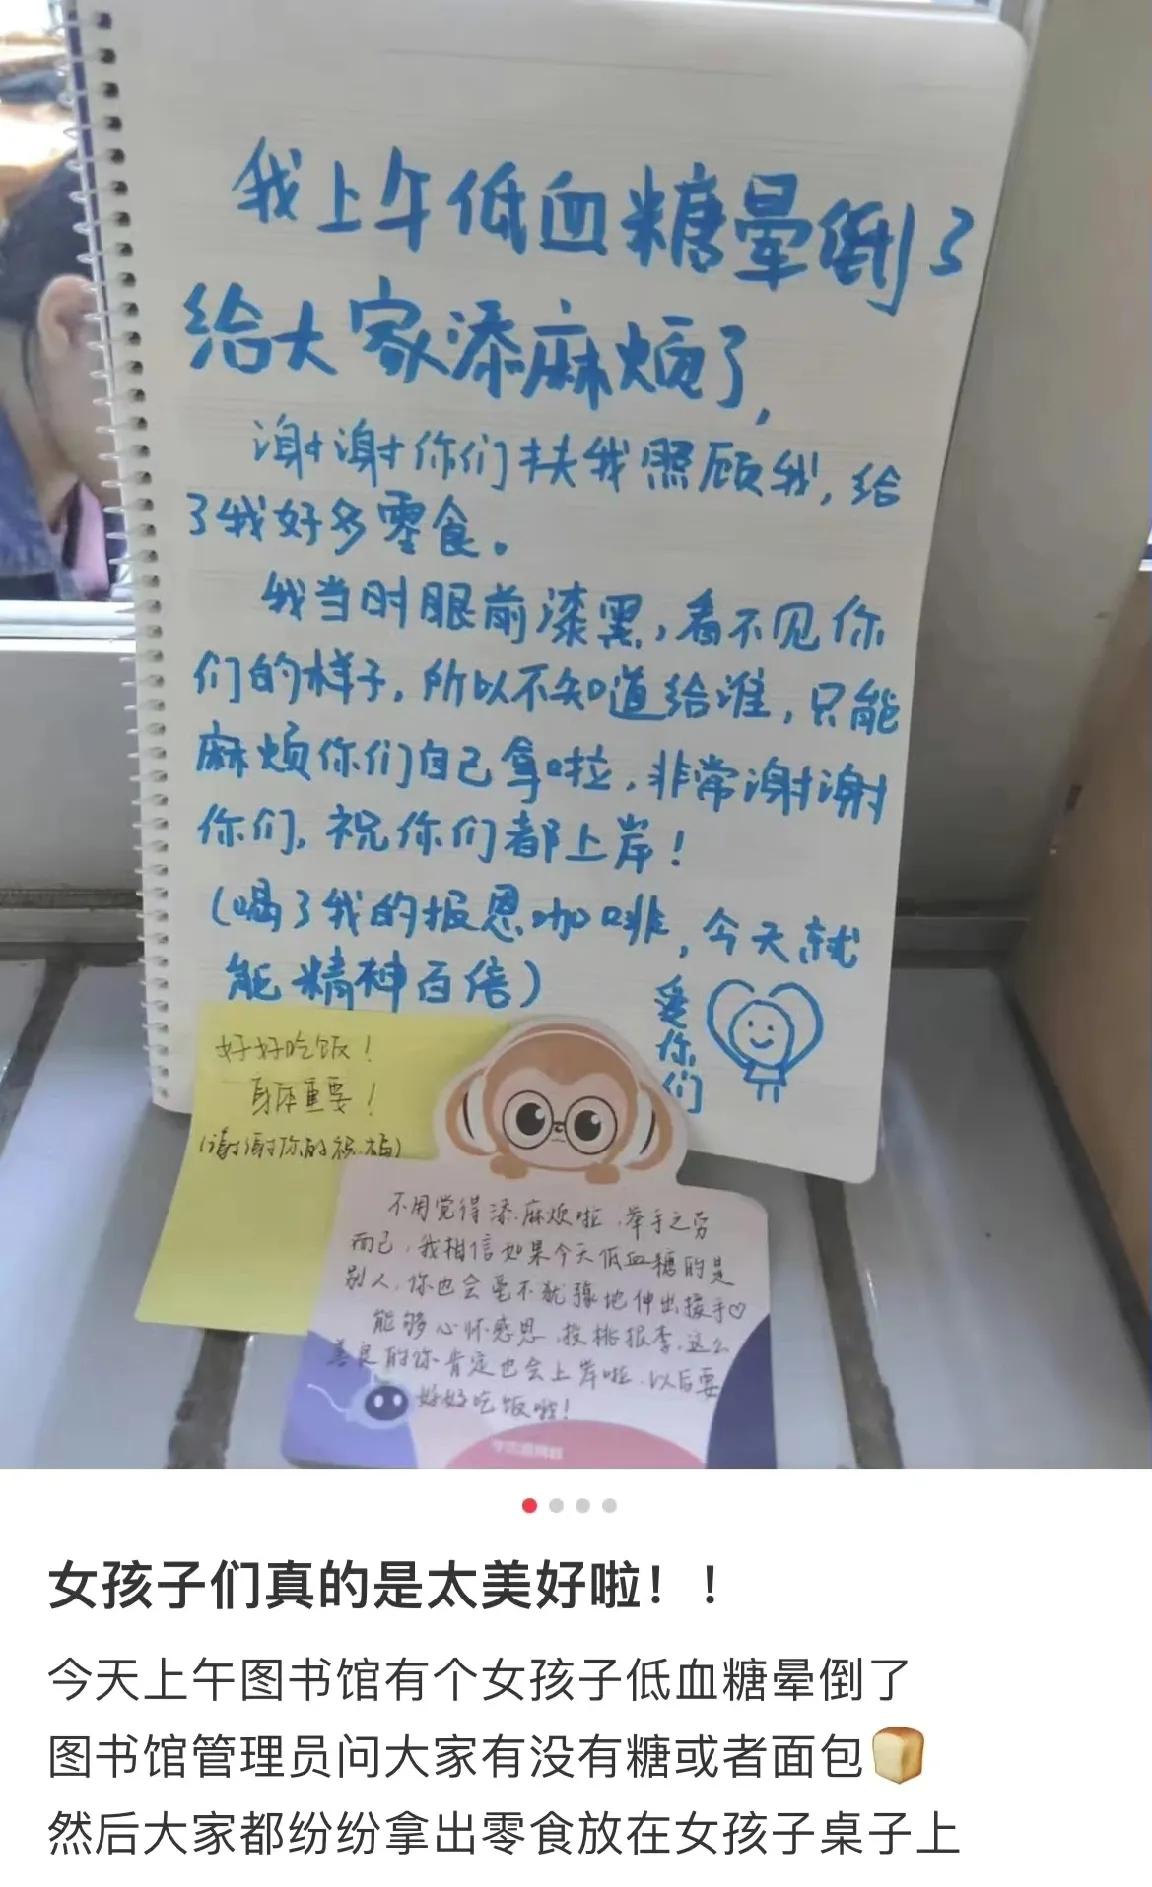 我上午低血糖晕倒了
给大家添麻烦了,
谢谢你们扶我照顾我,给
了我好多零食。
我当时眼前漆黑,看不见你
们的样子,所以不知道给谁,只能
麻烦你们自己拿啦,非常谢谢
你们,祝你们都上岸!
(喝了我的报恩咖啡,今天就
能精神百倍)
爱你们
好好吃饭!
身体重要!
(谢谢你的祝福)
不用觉得添麻烦啦,举手之劳
而已,我相信如果今天低血糖的是
别人,你也会毫不犹豫地伸出援手♡
能够心怀感恩,投桃报李,这么
善良的你肯定也会上岸啦,以后要
好好吃饭哦!
女孩子们真的是太美好啦!!
今天上午图书馆有个女孩子低血糖晕倒了
图书馆管理员问大家有没有糖或者面包🍞
然后大家都纷纷拿出零食放在女孩子桌子上